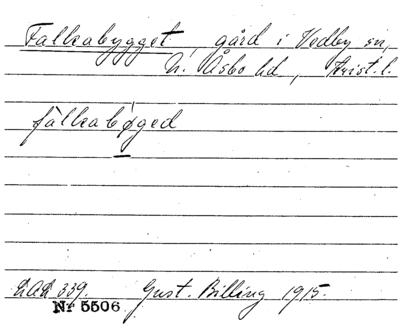 Falkabygget, gård i Vedby sn,
N. Åsbo hd, Krist. l.
fàlkabýged
LAL 339. Gust. Billing 1915.
Nr 5506